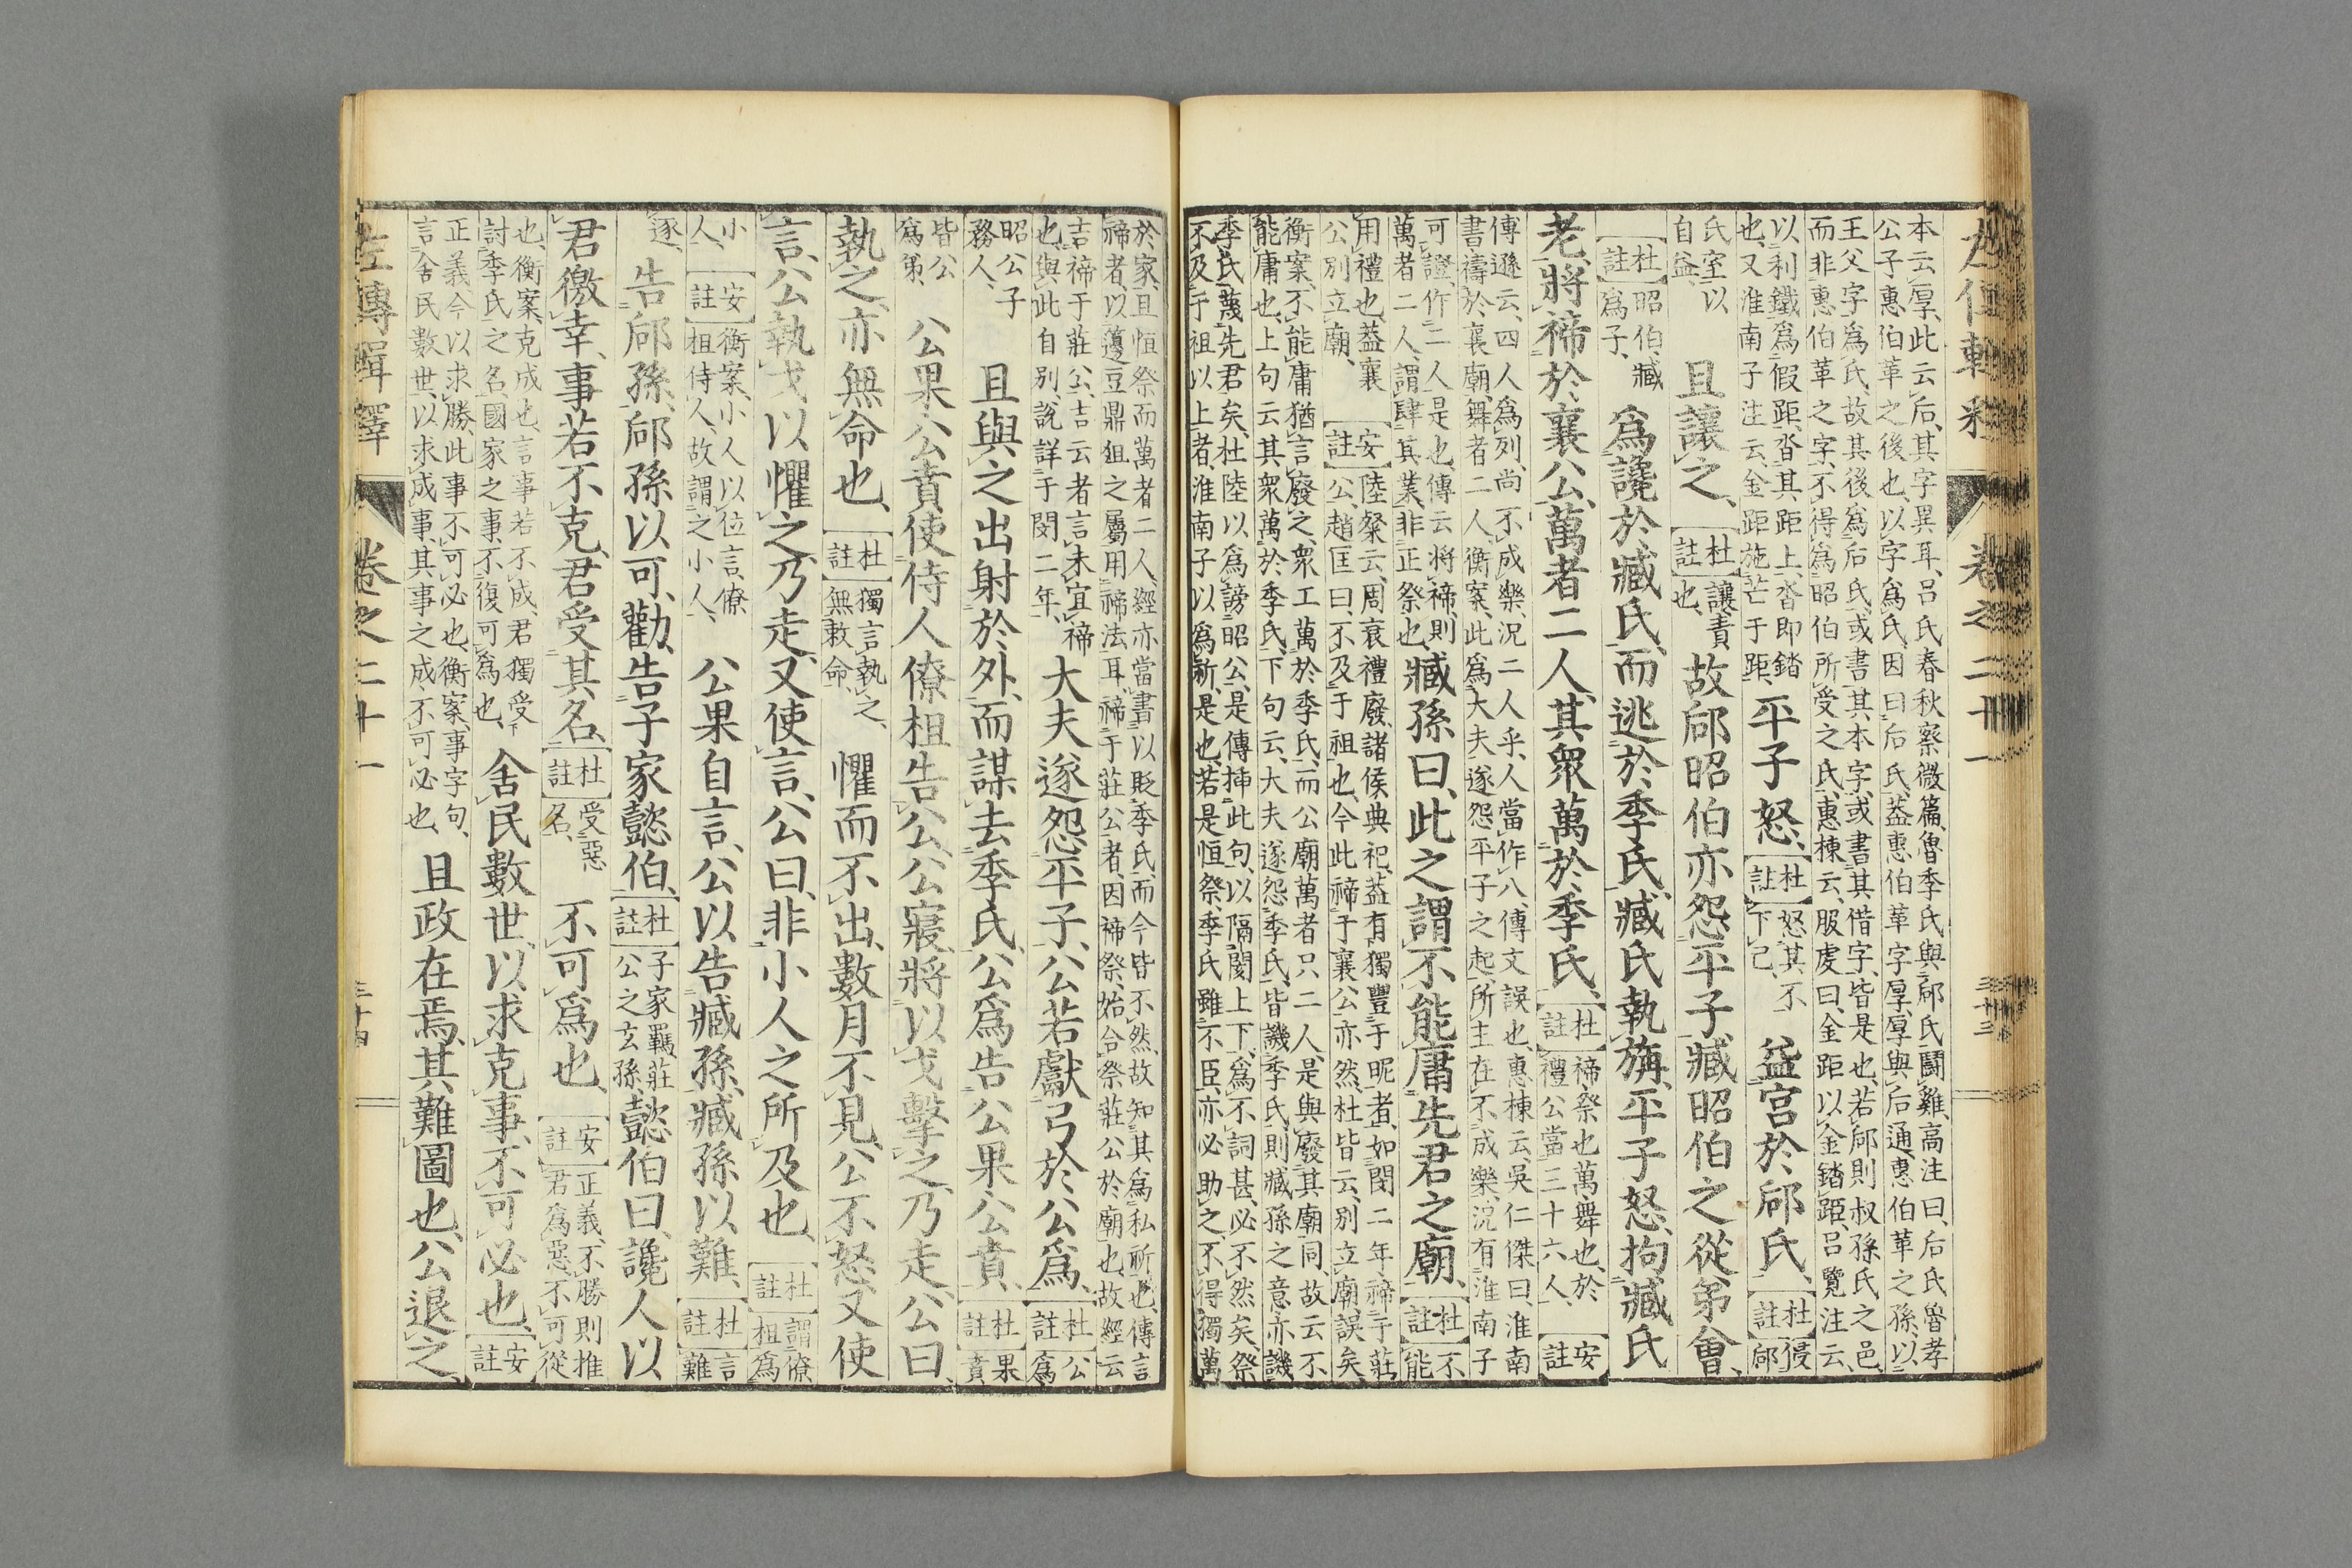 左傳輯釋 卷之二十一 三十三
本云厚、此云后、其字異耳、呂氏春秋察微篇、魯季氏與郈氏鬭雞、高注曰、后氏魯孝
公子惠伯革之後也、以字爲氏、因曰后氏、蓋惠伯革字厚、厚與后通、惠伯革之孫、以
王父字爲氏、故其後爲后氏、或書其本字、或書其借字、皆是也、若郈則叔孫氏之邑、
而非惠伯革之字、不得爲昭伯所受之氏、惠棟云、服虔曰、金距以金鐕距、呂覽注云、
以利鐵爲假距、沓其距上、沓卽鐕
也、又淮南子注云、金距施芒于距、平子怒、【杜註】怒其不下己、益宮於郈氏、【杜註】侵郈
氏室以自益、且讓之、【杜註】讓責也、故郈昭伯亦怨平子、臧昭伯之從弟會、
【杜註】昭伯、臧爲子、爲讒於臧氏、而逃於季氏、臧氏執旃、平子怒、拘臧氏
老、將禘於襄公、萬者二人、其衆萬於季氏、【杜註】禘祭也、萬、舞也、於禮公當三十六人、【安註】
傳遜云、四人爲列、尚不成樂、況二人乎、人當作八、傳文誤也、惠棟云、吳仁傑曰、淮南
書、禱於襄廟、舞者二人、衡案、此爲大夫遂怨平子之起、所主在不成樂、況有淮南子
可證、作二人是也、傳云將禘、則
萬者二人、謂肆其業、非正祭也、臧孫曰、此之謂不能庸先君之廟、【杜註】不能
用禮也、蓋襄公別立廟、【安註】陸粲云、周衰禮廢、諸侯典祀、蓋有獨豐于昵者、如閔二年禘于莊
公、趙匡曰、不及于祖也、今此禘于襄公亦然、杜皆云、別立廟、誤矣、
衡案、不能庸猶言廢之、衆工萬於季氏、而公廟萬者只二人、是與廢其廟同、故云不
能庸也、上句云其衆萬於季氏、下句云、大夫遂怨季氏、皆譏季氏、則臧孫之意亦譏
季氏蔑先君矣、杜陸以爲謗昭公、是傳揷此句、以隔閡上下、爲不詞甚、必不然矣、祭
不及于祖以上者、淮南子以爲祈、是也、若是恒祭、季氏雖不臣、亦必助之、不得獨萬
於家、且恒祭而萬者二人、經亦當書以貶季氏、而今皆不然、故知其爲私祈也、傳言
禘者、以籩豆鼎俎之屬、用禘法耳、禘于莊公者、因禘祭、始合祭莊公於廟也、故經云
吉禘于莊公、吉云者言未宜禘
也、與此自別、說詳于閔二年、大夫遂怨平子、公若獻弓於公爲、【杜註】公爲、
昭公子務人、且與之出射於外、而謀去季氏、公爲告公果公賁、【杜註】果賁
皆公爲弟、公果公賁使侍人僚柤告公、公寢、將以戈擊之、乃走、公曰、
執之、亦無命也、【杜註】獨言執之、無敕命、懼而不出、數月不見、公不怒、又使
言、公執戈以懼之、乃走、又使言、公曰、非小人之所及也、【杜註】謂僚柤爲
小人、【安註】衡案、小人以位言、僚柤侍人、故謂之小人、公果自言、公以告臧孫、臧孫以難、【杜註】言難
逐、告郈孫、郈孫以可、勸、告子家懿伯、【杜註】子家羈、莊公之玄孫、懿伯曰、讒人以
君徼幸、事若不克、君受其名、【杜註】受惡名、不可爲也、【安註】正義、不勝則推君爲惡、不可從
也、衡案、克成也、言事若不成、君獨受下
討季氏之名、國家之事、不復可爲也、舍民數世、以求克事、不可必也、【安註】
正義今以求勝、此事不可必也、衡案事字句、
言舍民數世、以求成事、其事之成、不可必也、且政在焉、其難圖也、公退之、
左傳輯釋 卷之二十一 三十四